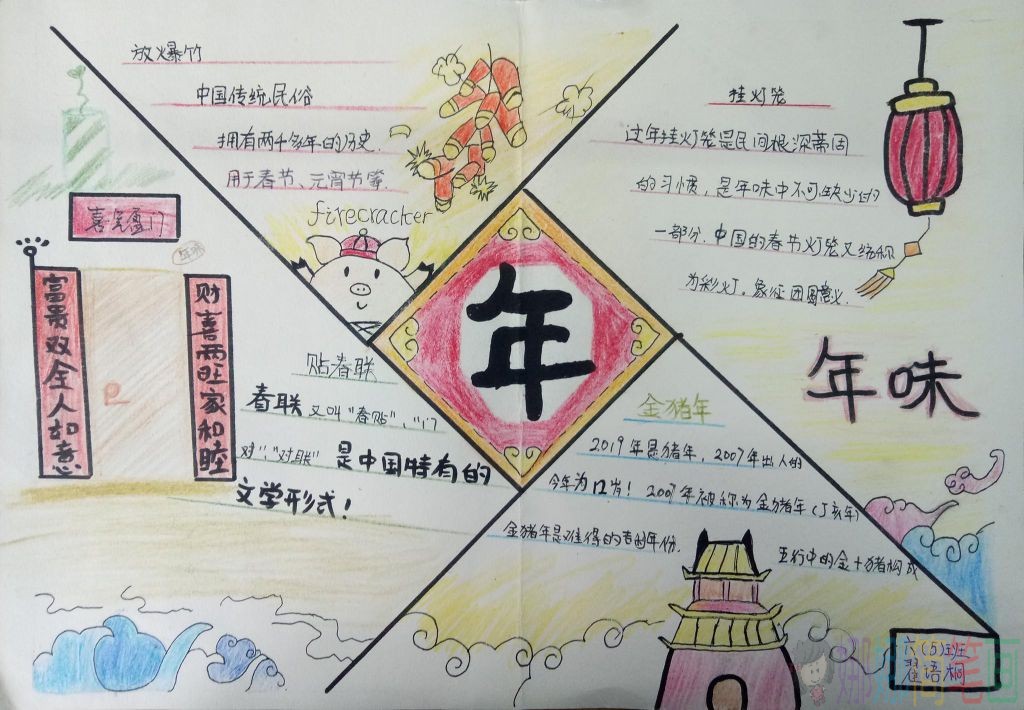 放爆竹
中国传统民俗
拥有两千多年的历史.
用于春节、元宵节等.
firecracker
挂灯笼
过年挂灯笼是民间根深蒂固
的习惯，是年味中不可缺少的
一部分.中国的春节灯笼又统称
为彩灯，象征团圆意义.
喜气盈门
年味
富贵双全人如意
财喜两旺家和睦
年
年味
贴春联
春联又叫"春贴"、"门
对""对联"是中国特有的
文学形式！
金猪年
2019年是猪年，2007年出人的
今年为12岁！2007年被称为金猪年（丁亥年）
金猪年是难得的吉利年份.
五行中的金+猪构成
六（5）班
翟语桐